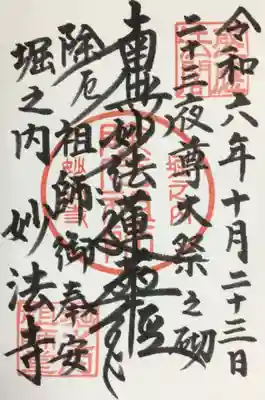 令和六年十月二十三日
二十三夜尊大祭之砌
南無妙法蓮華経
除厄祖師御奉安
堀之内妙法寺
堀之内